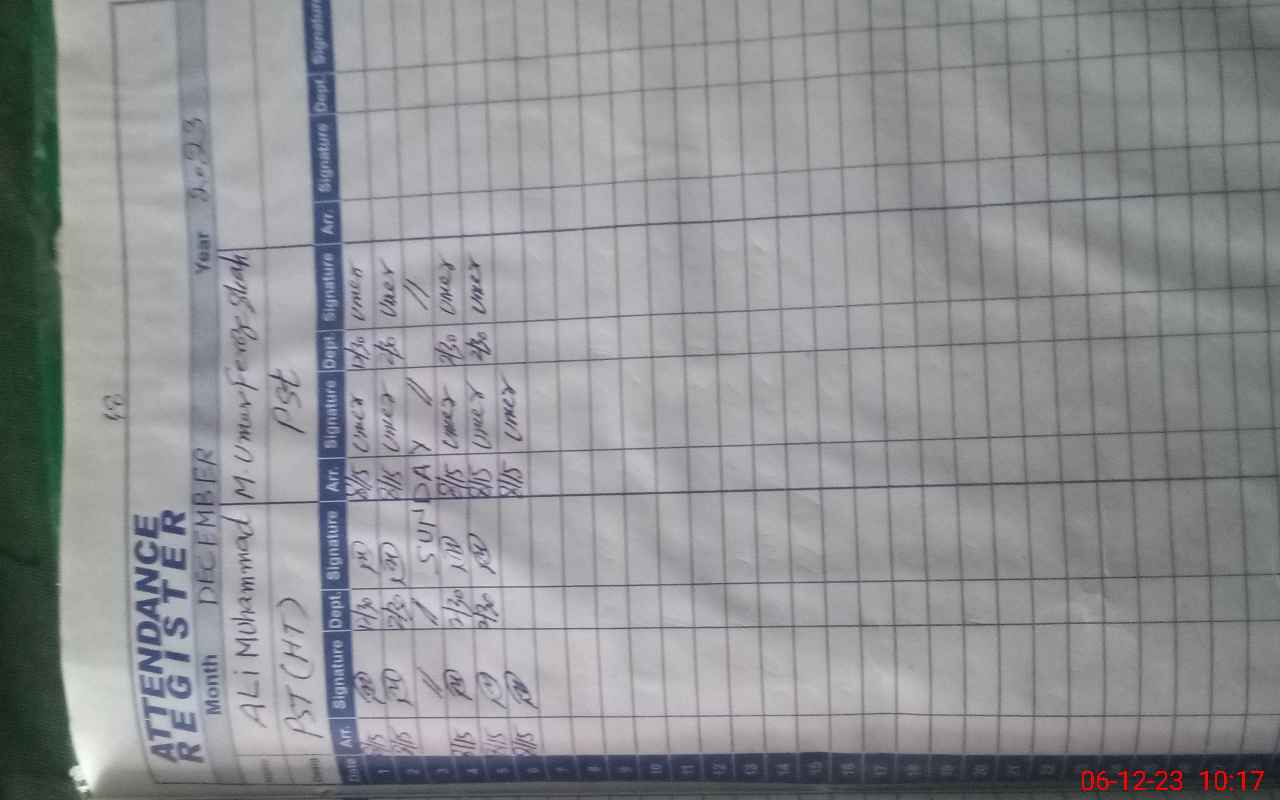 98
ATTENDANCE
REGISTER
Month DECEMBER Year 2023
ALi Muhammad M. Umar feroz shah
PST (HT) PSt
Date Arr. Signature Dept. Signature Arr. Signature Dept. Signature Arr. Signature Dept. Signature
1 8/15 12/30 8/15 Umer 12/30 Umer
2 8/15 2/30 8/15 Umer 2/30 Umer
3 // // SUNDAY // //
4 8/15 2/30 8/15 Umer 2/30 Umer
5 8/15 2/30 8/15 Umer 2/30 Umer
6 8/15 8/15 Umer
7
8
9
10
11
12
13
14
15
16
17
18
19
20
21
22
06-12-23 10:17